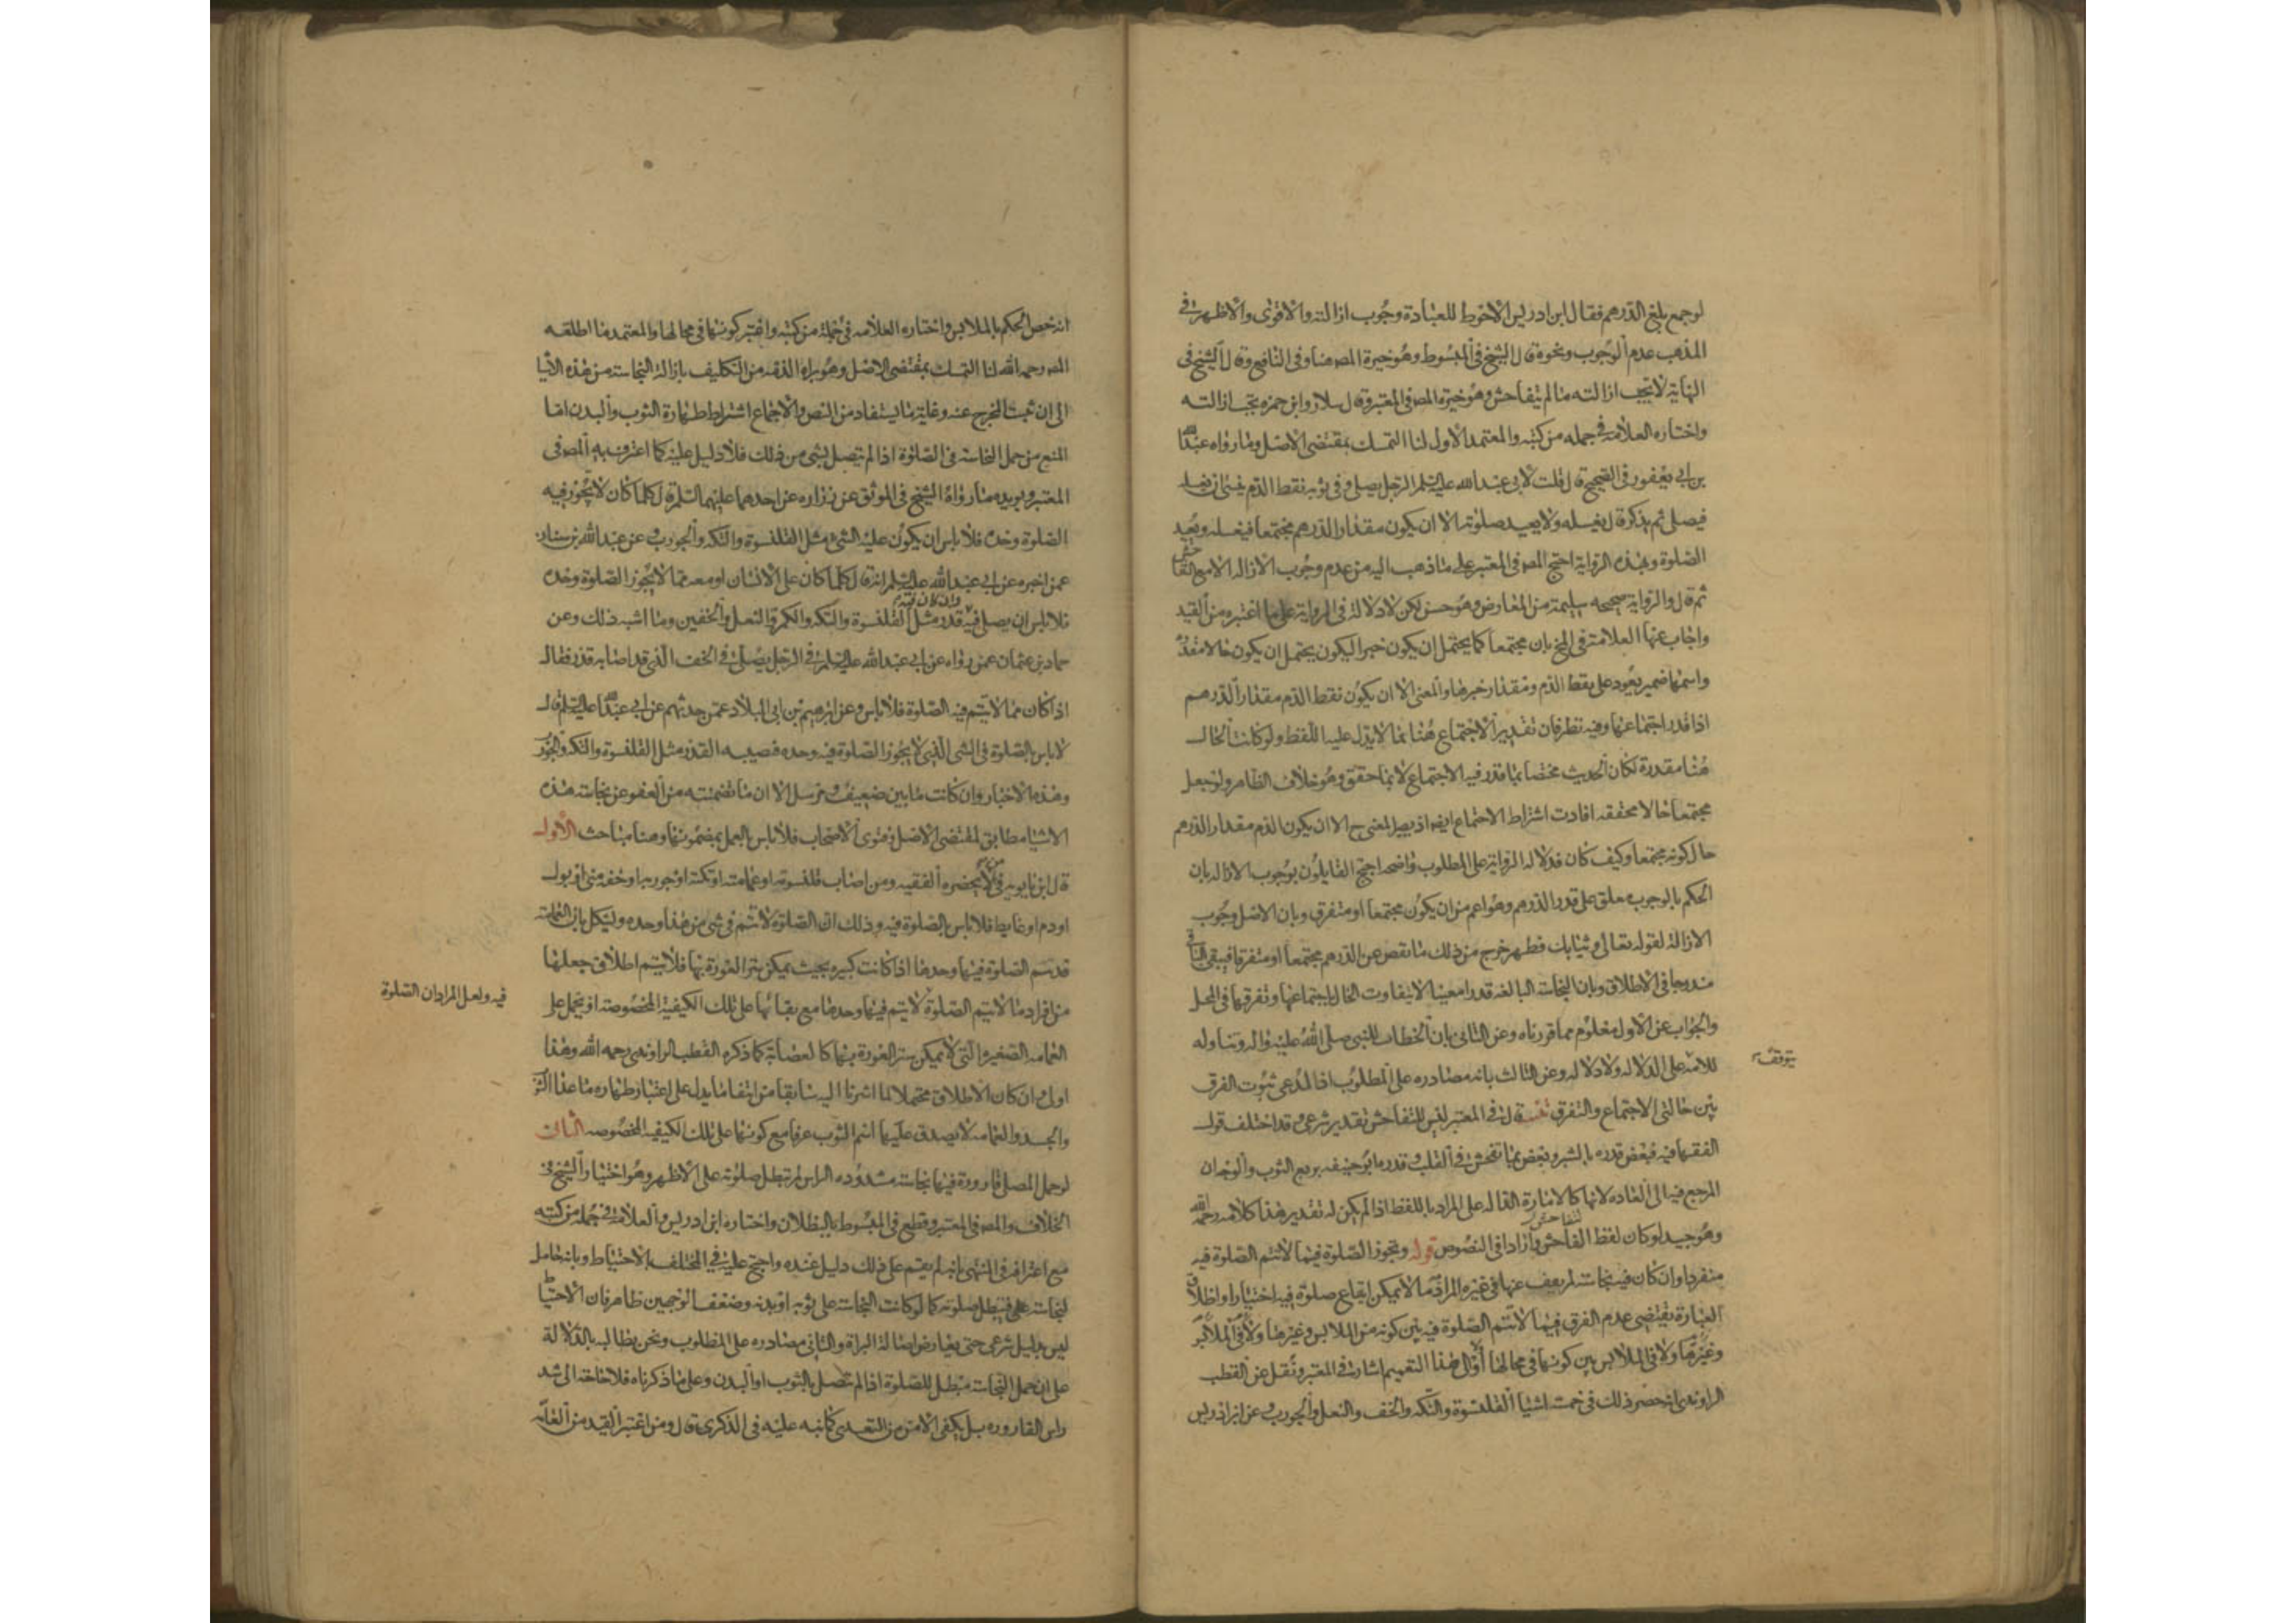 لو جمع بلغ الدرهم فقال ابن ادريس الاحوط للعبادة وجوب ازالته والاقوى والاظهر في
المذهب عدم الوجوب ونحوه قال الشيخ في المبسوط وهو خيرة المص هنا وفي النافع وقال الشيخ في
النهاية لا تجب ازالته ما لم يتفاحش وهو خيرة المص في المعتبر وقال سلار وابن حمزه يجب ازالته
واختاره العلامة في جمله من كتبه والمعتمد الاول لنا التمسك بمقتضى الاصل وما رواه عبد الله
بن ابي يعفور في الصحيح قال قلت لابي عبد الله عليه السلم الرجل يصلي وفي ثوبه نقط الدم ينسى ان يغسله
فيصلي ثم يذكر قال يغسله ولا يعيد صلوته الا ان يكون مقدار الدرهم مجتمعا فيغسله ويعيد
الصلوة وبهذه الرواية احتج المص في المعتبر على ما ذهب اليه من عدم وجوب الازاله الا مع التفاحش
ثم قال والرواية صحيحه سليمة من المعارض وهو حسن لكن لا دلالة في الرواية على ما اعتبره من القيد
واجاب عنها العلامة في المخ بان مجتمعا كما يحتمل ان يكون خبرا ليكون يحتمل ان يكون حالا مقدرة
واسمها ضمير يعود على نقط الدم ومقدار خبرها والمعنى الا ان يكون نقط الدم مقدار الدرهم
اذا قدر اجتماعها وفيه نظر فان تقدير الاجتماع هنا مما لا يدل عليه اللفظ ولو كانت الحال
هنا مقدرة لكان الحديث مختصا بما قدر فيه الاجتماع لا بما حقق وهو خلاف الظاهر ولو جعل
مجتمعا حالا محققه افادت اشتراط الاجتماع ايضا اذ يصير المعنى ح الا ان يكون الدم مقدار الدرهم
حال كونه مجتمعا وكيف كان فدلاله الرواية على المطلوب واضحه احتج القايلون بوجوب الازاله بان
الحكم بالوجوب معلق على قدر الدرهم وهو اعم من ان يكون مجتمعا او متفرقا وبان الاصل وجوب
الازالة لقوله تعالى وثيابك فطهر خرج من ذلك ما نقص عن الدرهم مجتمعا او متفرقا فيبقى الباقي
مندرجا في الاطلاق وبان النجاسة البالغة قدرا معينا لا يتفاوت الحال باجتماعها وتفرقها في المحل
والجواب عن الاول معلوم مما قررناه وعن الثاني بان الخطاب للنبي صلى الله عليه واله وتناوله
للامه على الدلاله ولا دلاله وعن الثالث بانه مصادره على المطلوب اذ المدعى ثبوت الفرق
يتوقف
بين حالتي الاجتماع والتفرق قال في المعتبر ليس للتفاحش تقدير شرعي وقد اختلف قول
الفقها فيه فبعض قدره بالشبر وبعض بما تفحش في القلب وقدره ابو حنيفه بربع الثوب والوجه ان
المرجع فيه الى العاده لانها كالامارة الداله على المراد باللفظ اذا لم يكن له تقدير هذا كلامه رحمه الله
وهو جيد لو كان لفظ التفاحش واردا في النصوص قوله وتجوز الصلوة فيما لا تتم الصلوة فيه
منفردا وان كان فيه نجاسة لم يعف عنها في غيره المراد ما لا يمكن ايقاع صلوة فيه اختيارا واطلاق
العبارة يقتضي عدم الفرق فيما لا تتم الصلوة فيه بين كونه من الملابس وغيرها
وغيرها ولا في الملابس بين كونها في محالها اولا والى هذا التعميم اشار في المعتبر ونقل عن القطب
الراوندي انه حصر ذلك في خمسة اشيا القلنسوة والتكه والخف والنعل والجورب وعن ابن ادريس
انه خص الحكم بالملابس واختاره العلامه في جملة من كتبه واعتبر كونها في محالها والمعتمد ما اطلقه
المص رحمه الله لنا التمسك بمقتضى الاصل وهو براه الذمه من التكليف بازالة النجاسة من هذه الاشيا
الى ان يثبت المخرج عنه وغاية ما يستفاد من النص والاجماع اشتراط طهارة الثوب والبدن اما
المنع من حمل النجاسة في الصلوة اذا لم تتصل بشي من ذلك فلا دليل عليه كما اعترف به المص في
المعتبر ويويده ما رواه الشيخ في الموثق عن زراره عن احدهما عليهما السلم قال كلما كان لا تجوز فيه
الصلوة وحده فلا باس ان يكون عليه الشيء مثل القلنسوة والتكه والجورب وعن عبد الله بن سنان
عمن اخبره عن ابي عبد الله عليه السلم انه قال كلما كان على الانسان او معه مما لا يجوز الصلوة وحده
فلا باس ان يصلي فيه وان كان فيه قذر مثل القلنسوة والتكه والكمرة والنعل والخفين وما اشبه ذلك وعن
حماد بن عثمان عمن رواه عن ابي عبد الله عليه السلم في الرجل يصلي في الخف الذي قد اصابه قذر فقال
اذا كان مما لا يتم فيه الصلوة فلا باس وعن ابرهيم بن ابي البلاد عمن حدثهم عن ابي عبد الله عليه السلم قال
لا باس بالصلوة في الشي الذي لا يجوز الصلوة فيه وحده يصيبه القذر مثل القلنسوة والتكه والجورب
وهذه الاخبار وان كانت ما بين ضعيف ومرسل الا ان ما تضمنته من العفو عن نجاسة هذه
الاشيا مطابق لمقتضى الاصل وفتوى الاصحاب فلا باس بالعمل بمضمونها وهنا مباحث الاول
قال ابن بابويه في من لا يحضره الفقيه ومن اصاب قلنسوته او عمامته او تكته او جوربه او خفه مني او بول
او دم او غايط فلا باس بالصلوة فيه وذلك ان الصلوة لا تتم في شي من هذا وحده وليشكل بان العمامة
قد تتم الصلوة فيها وحدها اذا كانت كبيره بحيث يمكن ستر العورة بها فلا يتم اطلاق جعلها
من افراد ما لا تتم الصلوة لا يتم فيها وحدها مع بقائها على تلك الكيفية المخصوصة او يحمل على
فيه ولعل المراد ان الصلوة
العمامه الصغيره التي لا يمكن ستر العورة بها كالعصابة كما ذكره القطب الراوندي رحمه الله وهذا
اولى وان كان الاطلاق محتملا لما اشرنا اليه سابقا من انتفا ما يدل على اعتبار طهاره ما عدا الثوب
والجسد والعمامه لا يصدق عليها اسم الثوب عرفا مع كونها على تلك الكيفيه المخصوصه الثاني
لو حمل المصلي قارورة فيها نجاسة مشدوده الراس لم تبطل صلوته على الاظهر وهو اختيار الشيخ في
الخلاف والمص في المعتبر وقطع في المبسوط بالبطلان واختاره ابن ادريس والعلامة في جمله من كتبه
مع اعترافه في المنتهى بانه لم يقم على ذلك دليل عنده واحتج عليه في المختلف بالاحتياط وبانه حامل
لنجاسة فتبطل صلوته كما لو كانت النجاسة على ثوبه او بدنه وضعف الوجهين ظاهر فان الاحتياط
ليس بدليل شرعي حتى يعارض اصالة البراة والثاني مصادره على المطلوب ونحن نطالبه بالدلالة
على ان حمل النجاسة مبطل للصلوة اذا لم تتصل بالثوب او البدن وعلى ما ذكرناه فلا حاجة الى شد
راس القاروره بل يكفي الامن من التعدي كما نبه عليه في الذكرى قال ومن اعتبر القيد من العامة